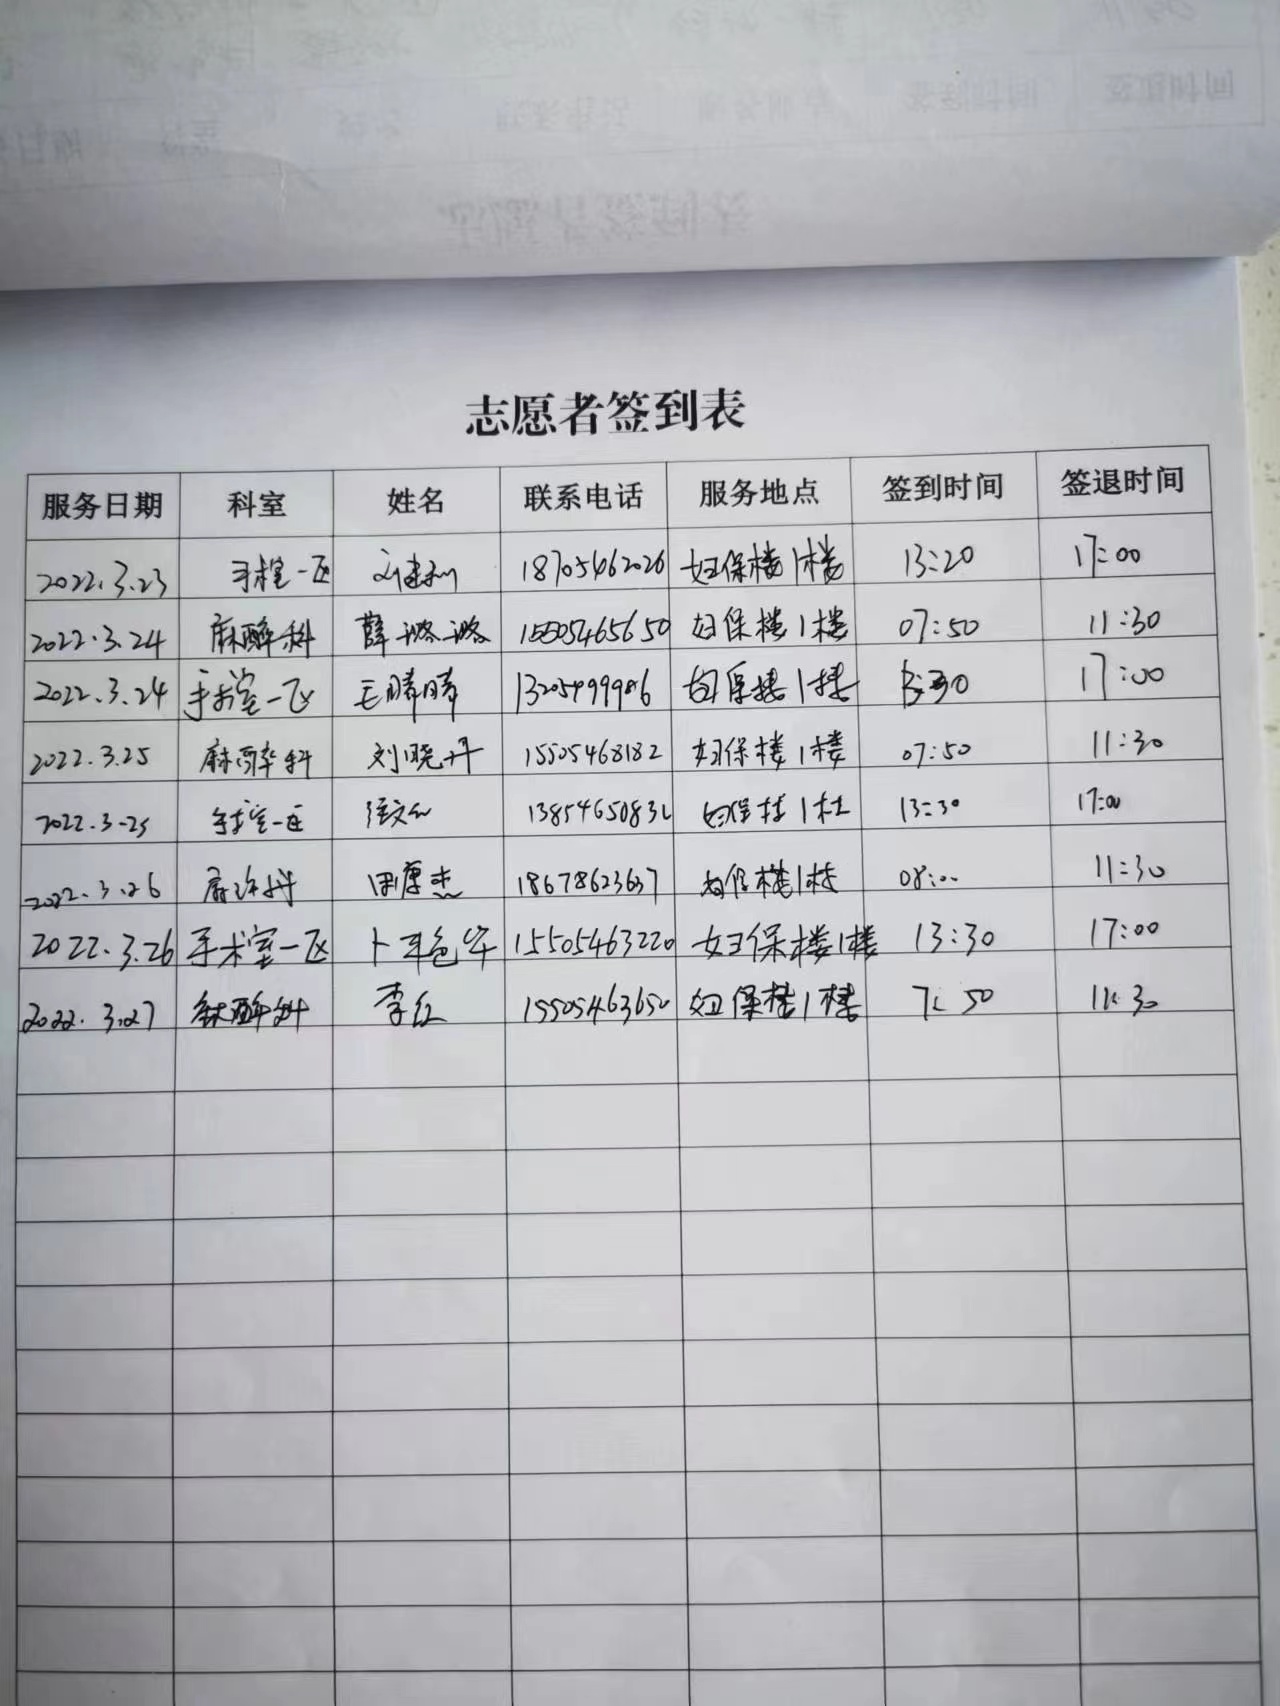 志愿者签到表
服务日期 科室 姓名 联系电话 服务地点 签到时间 签退时间
2022.3.23 手术室一区 18705462026 妇保楼1楼 13:20 17:00
2022.3.24 麻醉科 薛潞潞 15505465650 妇保楼1楼 07:50 11:30
2022.3.24 手术室一区 王晴晴 妇保楼1楼 17:00
2022.3.25 麻醉科 刘晓丹 15505468182 妇保楼1楼 07:50 11:30
2022.3.25 手术室一区 13854650832 妇保楼1楼 13:30 17:00
2022.3.26 麻醉科 田康杰 18678623637 妇保楼1楼 08:00 11:30
2022.3.26 手术室一区 15505463220 妇保楼1楼 13:30 17:00
2022.3.27 麻醉科 李红 15505463650 妇保楼1楼 7:50 11:30